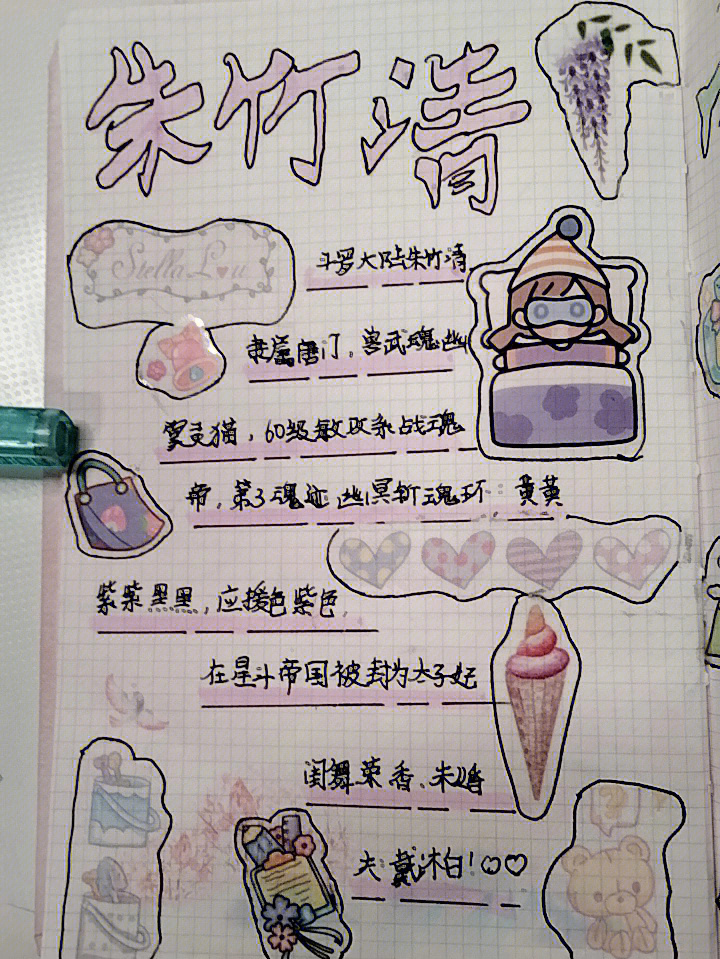 朱竹清
Stella Lou
斗罗大陆朱竹清
隶属唐门,兽武魂幽
冥灵猫,60级敏攻系战魂
帝,第3魂迹幽冥斩魂环:黄黄
紫紫黑黑,应援色紫色,
在星斗帝国被封为太子妃
闺舞荣香、朱
夫戴沐白!